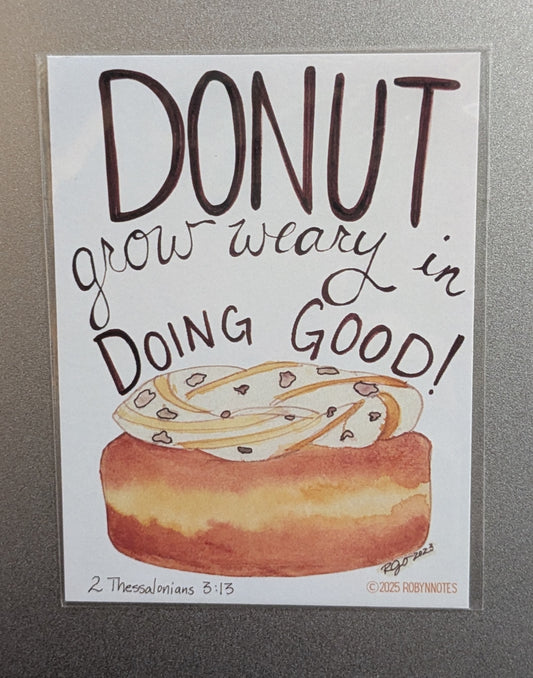 DONUT
grow weary in
DOING GOOD!
RGO 2023
2 Thessalonians 3:13
©2025 ROBYNNOTES